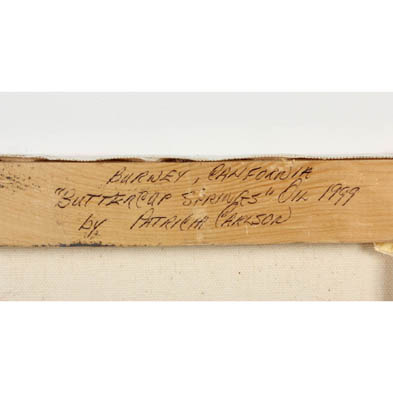 BURNEY, CALIFORNIA
"BUTTERCUP SPRINGS" OIL 1999
by PATRICIA CARLSON